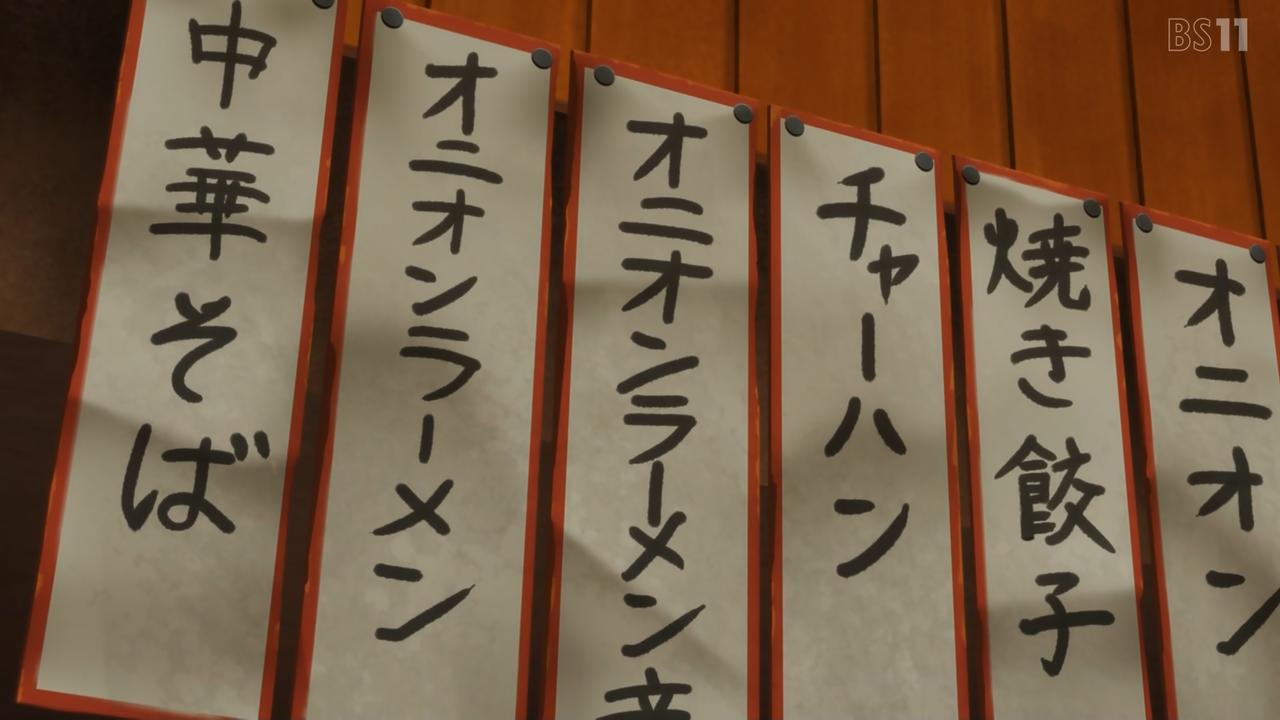 中華そば
オニオンラーメン
オニオンラーメン
チャーハン
焼き餃子
オニオン
BS11